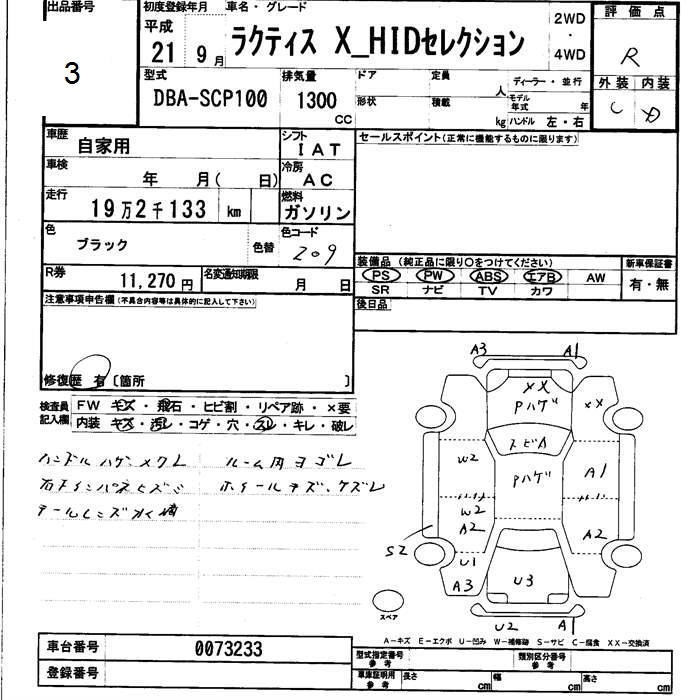 出品番号
3
初度登録年月 車名・グレード
平成 21 9月 ラクティス X_HIDセレクション
2WD
・
4WD
評価点
R
外装 内装
C D
型式 DBA-SCP100
排気量 1300 CC
ドア 定員 人
形状 積載 kg
ディーラー・並行
モデル年式 年
ハンドル 左・右
車歴 自家用
シフト IAT
車検 年 月( 日)
冷房 AC
走行 19万2千133 km
燃料 ガソリン
色 ブラック 色替
色コード 209
R券 11,270円
名変通知期限 月 日
セールスポイント(正常に機能するものに限ります)
装備品 (純正品に限り〇をつけてください)
PS PW ABS エアB AW
SR ナビ TV カワ
新車保証書
有・無
後日品
注意事項申告欄(不具合内容等は具体的に記入して下さい)
修復歴 有〔箇所 〕
検査員記入欄
FW キズ・飛石・ヒビ割・リペア跡・×要
内装 キズ・汚レ・コゲ・穴・スレ・キレ・破レ
ハンドルハゲ、メクレ ルーム内ヨゴレ
ホイールキズ、ケズレ
A3 A1
XX
Pハゲ
XX
W2
トビA
Pハゲ
A1
W2
A2
A2
S2
U1
A3
U3
U2 A1
スペア
A-キズ E-エクボ U-凹み W-補修跡 S-サビ C-腐食 XX-交換済
車台番号 0073233
登録番号
型式指定番号 参考
類別区分番号 参考
車庫証明用 参考 長さ cm 幅 cm 高さ cm